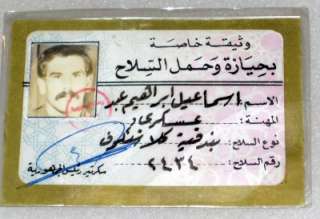 وثيقة خاصة
بحيازة وحمل السلاح
الاسم : اسماعيل ابراهيم عبد
المهنة : عسكري
نوع السلاح : بندقية كلاشنكوف
رقم السلاح : ٢٤٢٤
سكرتير رئيس الجمهورية